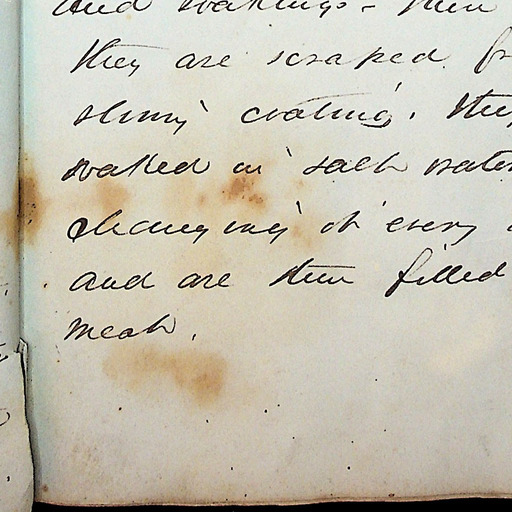 and soakings - then
they are scraped fr
slimy coating. they
soaked in salt water
changing it every
and are then filled
meat.